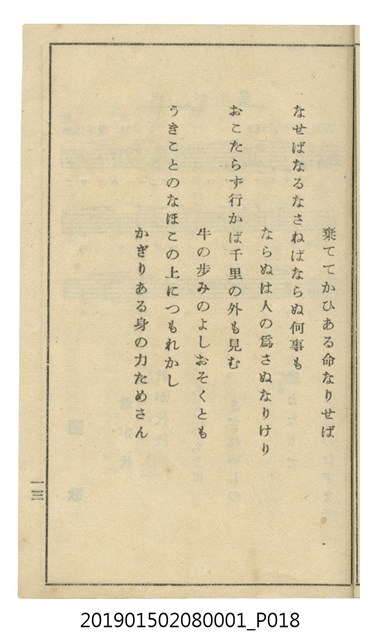 棄ててかひある命なりせば
なせばなるなさねばならぬ何事も
ならぬは人の爲さぬなりけり
おこたらず行かば千里の外も見む
牛の歩みのよしおそくとも
うきことのなほこの上につもれかし
かぎりある身の力ためさん
一三
201901502080001_P018